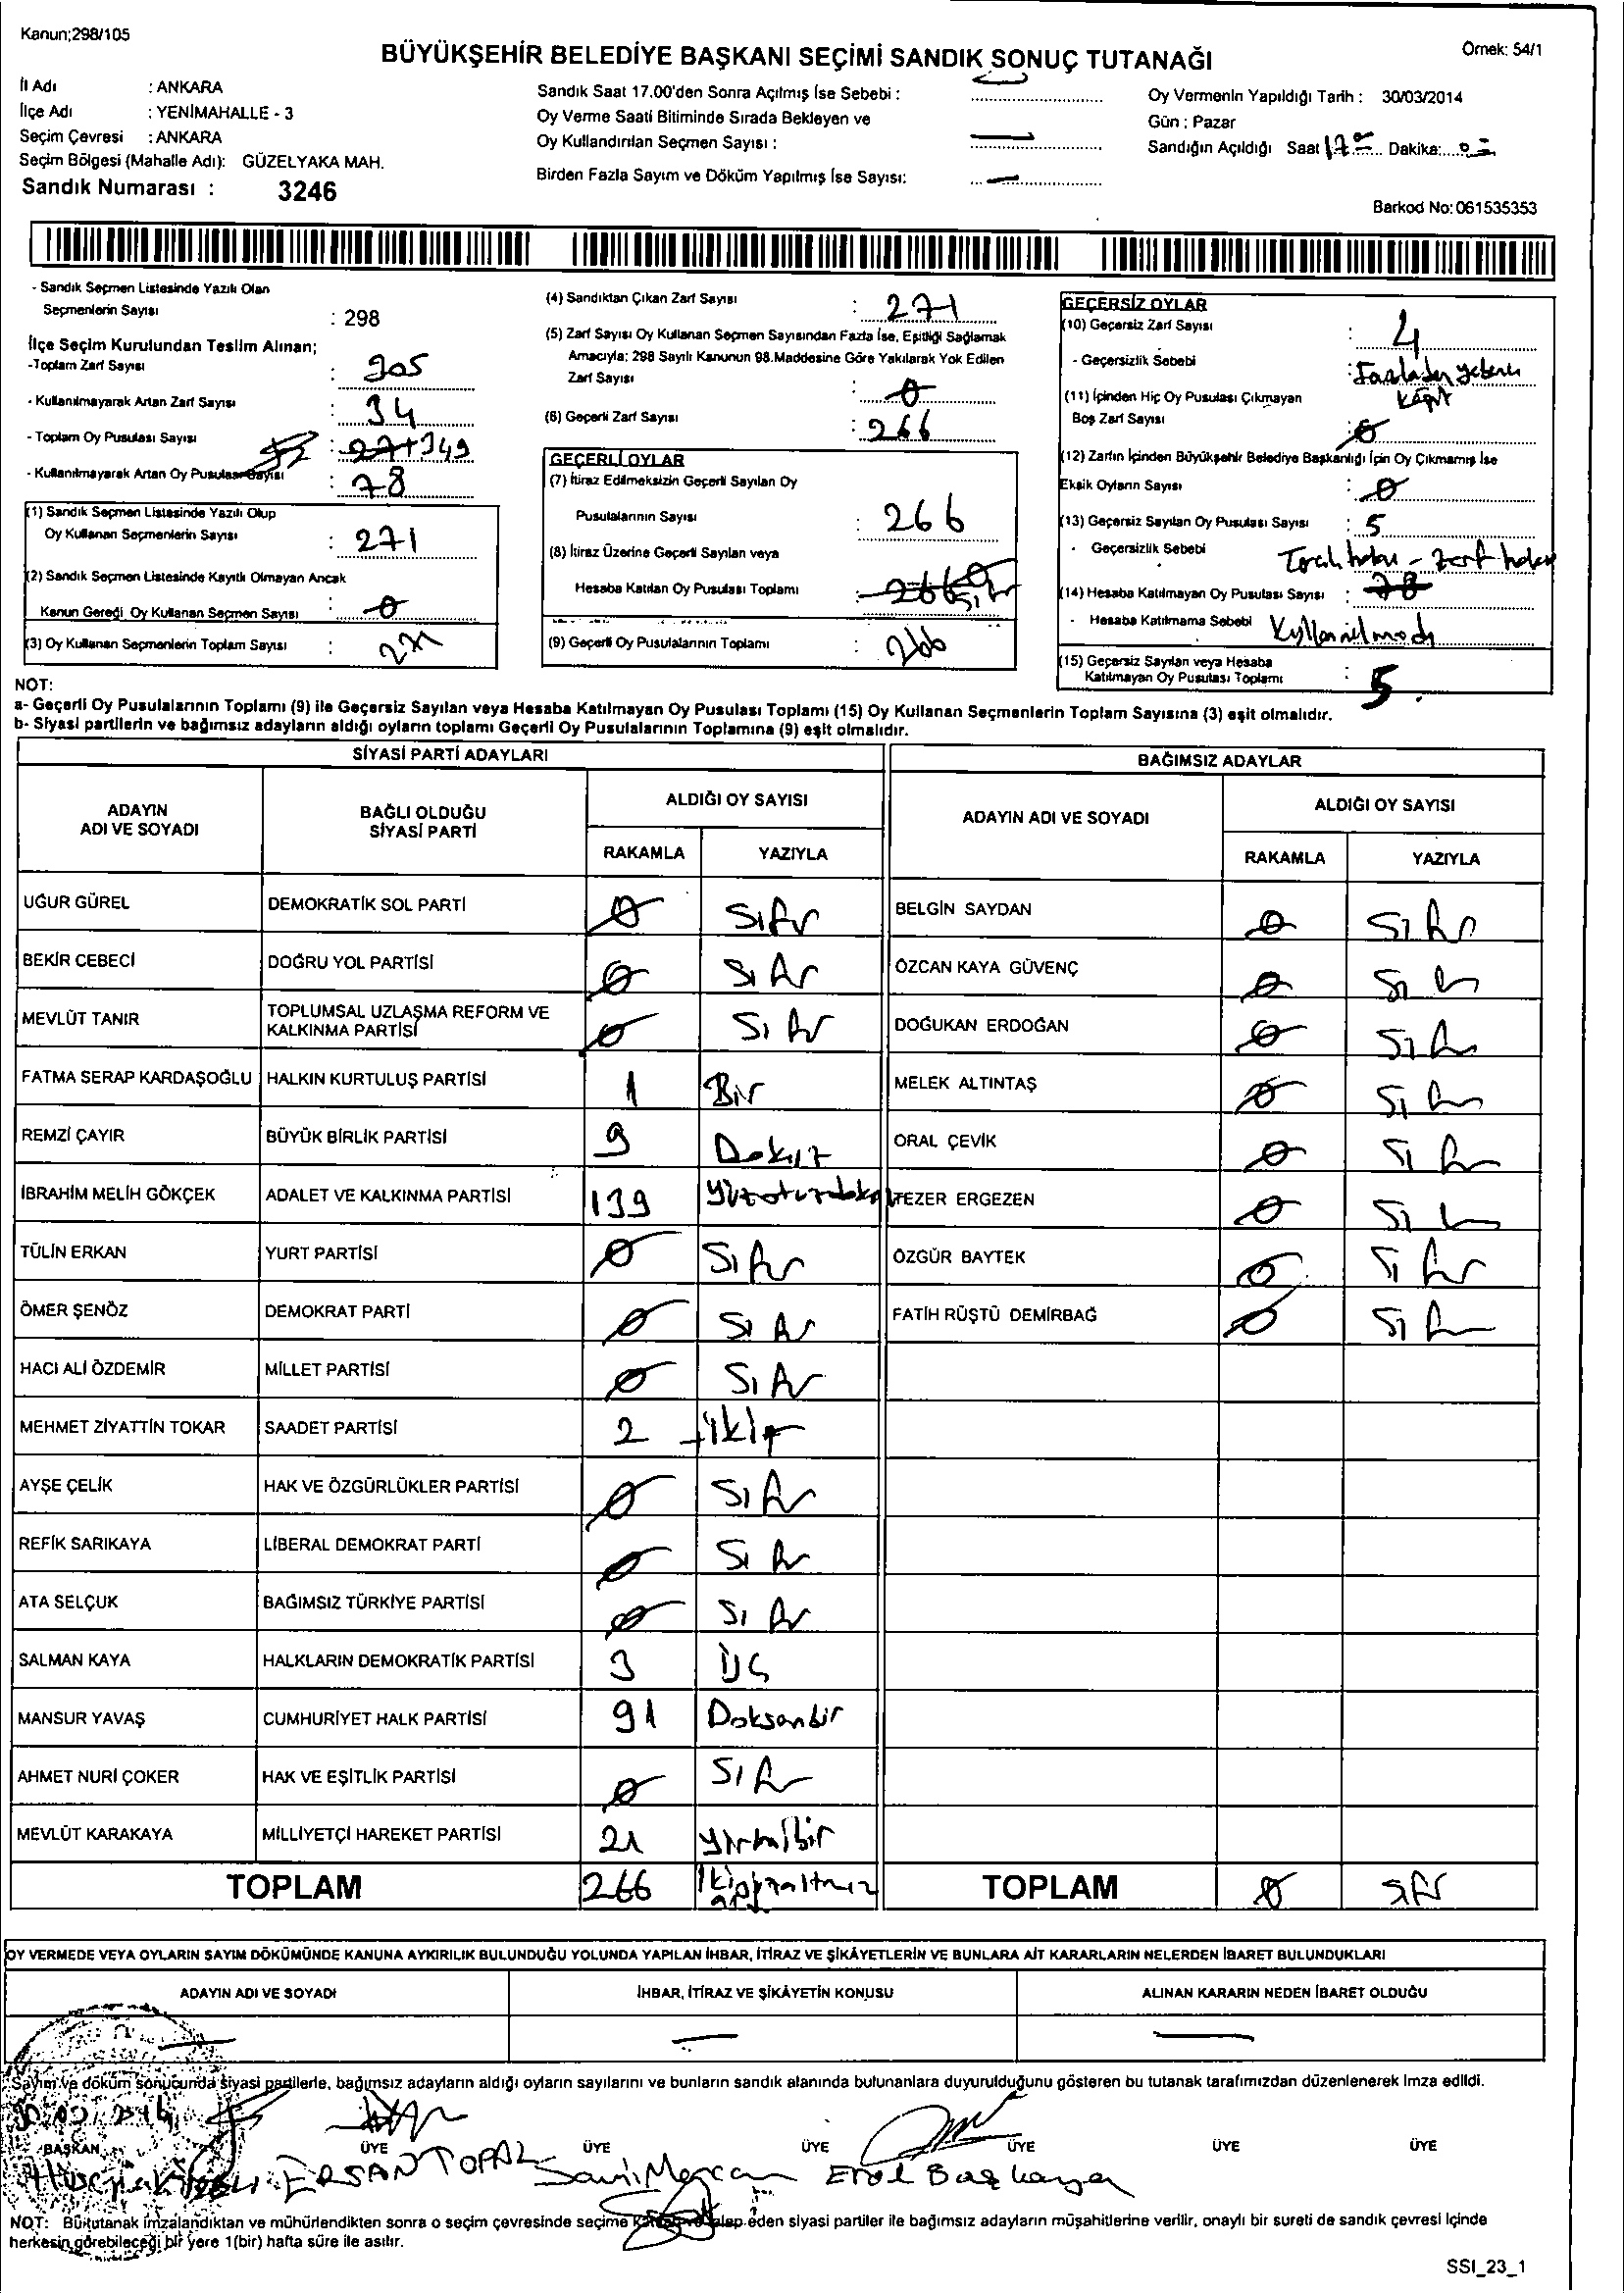 Kanun;298/105
BÜYÜKŞEHİR BELEDİYE BAŞKANI SEÇİMİ SANDIK SONUÇ TUTANAĞI
Örnek: 54/1
İl Adı : ANKARA
İlçe Adı : YENİMAHALLE - 3
Seçim Çevresi : ANKARA
Seçim Bölgesi (Mahalle Adı): GÜZELYAKA MAH.
Sandık Numarası : 3246
Sandık Saat 17.00'den Sonra Açılmış İse Sebebi :
Oy Verme Saati Bitiminde Sırada Bekleyen ve
Oy Kullandırılan Seçmen Sayısı :
Birden Fazla Sayım ve Döküm Yapılmış İse Sayısı:
Oy Vermenin Yapıldığı Tarih : 30/03/2014
Gün : Pazar
Sandığın Açıldığı Saat 17 Dakika:
Barkod No: 061535353
- Sandık Seçmen Listesinde Yazılı Olan
Seçmenlerin Sayısı : 298
İlçe Seçim Kurulundan Teslim Alınan;
-Toplam Zarf Sayısı : 305
- Kullanılmayarak Artan Zarf Sayısı : 34
- Toplam Oy Pusulası Sayısı : 349
- Kullanılmayarak Artan Oy Pusulası Sayısı : 78
(1) Sandık Seçmen Listesinde Yazılı Olup
Oy Kullanan Seçmenlerin Sayısı : 271
(2) Sandık Seçmen Listesinde Kayıtlı Olmayan Ancak
Kanun Gereği Oy Kullanan Seçmen Sayısı : 0
(3) Oy Kullanan Seçmenlerin Toplam Sayısı : 271
(4) Sandıktan Çıkan Zarf Sayısı : 271
(5) Zarf Sayısı Oy Kullanan Seçmen Sayısından Fazla İse, Eşitliği Sağlamak
Amacıyla; 298 Sayılı Kanunun 98.Maddesine Göre Yakılarak Yok Edilen
Zarf Sayısı : 0
(6) Geçerli Zarf Sayısı : 266
GEÇERLİ OYLAR
(7) İtiraz Edilmeksizin Geçerli Sayılan Oy
Pusulalarının Sayısı : 266
(8) İtiraz Üzerine Geçerli Sayılan veya
Hesaba Katılan Oy Pusulası Toplamı : 266 0
(9) Geçerli Oy Pusulalarının Toplamı : 266
GEÇERSİZ OYLAR
(10) Geçersiz Zarf Sayısı : 4
- Geçersizlik Sebebi :
(11) İçinden Hiç Oy Pusulası Çıkmayan
Boş Zarf Sayısı : 0
(12) Zarfın İçinden Büyükşehir Belediye Başkanlığı İçin Oy Çıkmamış İse
Eksik Oyların Sayısı : 0
(13) Geçersiz Sayılan Oy Pusulası Sayısı : 5
- Geçersizlik Sebebi
(14) Hesaba Katılmayan Oy Pusulası Sayısı : 78
- Hesaba Katılmama Sebebi Kullanılmadı
(15) Geçersiz Sayılan veya Hesaba
Katılmayan Oy Pusulası Toplamı : 5
NOT:
a- Geçerli Oy Pusulalarının Toplamı (9) ile Geçersiz Sayılan veya Hesaba Katılmayan Oy Pusulası Toplamı (15) Oy Kullanan Seçmenlerin Toplam Sayısına (3) eşit olmalıdır.
b- Siyasi partilerin ve bağımsız adayların aldığı oyların toplamı Geçerli Oy Pusulalarının Toplamına (9) eşit olmalıdır.
SİYASİ PARTİ ADAYLARI
ADAYIN ADI VE SOYADI
BAĞLI OLDUĞU SİYASİ PARTİ
ALDIĞI OY SAYISI
RAKAMLA YAZIYLA
UĞUR GÜREL DEMOKRATİK SOL PARTİ 0 Sıfır
BEKİR CEBECİ DOĞRU YOL PARTİSİ 0 Sıfır
MEVLÜT TANIR TOPLUMSAL UZLAŞMA REFORM VE KALKINMA PARTİSİ 0 Sıfır
FATMA SERAP KARDAŞOĞLU HALKIN KURTULUŞ PARTİSİ 1 Bir
REMZİ ÇAYIR BÜYÜK BİRLİK PARTİSİ 9 Dokuz
İBRAHİM MELİH GÖKÇEK ADALET VE KALKINMA PARTİSİ 139 Yüzotuzdokuz
TÜLİN ERKAN YURT PARTİSİ 0 Sıfır
ÖMER ŞENÖZ DEMOKRAT PARTİ 0 Sıfır
HACI ALİ ÖZDEMİR MİLLET PARTİSİ 0 Sıfır
MEHMET ZİYATTİN TOKAR SAADET PARTİSİ 2 İki
AYŞE ÇELİK HAK VE ÖZGÜRLÜKLER PARTİSİ 0 Sıfır
REFİK SARIKAYA LİBERAL DEMOKRAT PARTİ 0 Sıfır
ATA SELÇUK BAĞIMSIZ TÜRKİYE PARTİSİ 0 Sıfır
SALMAN KAYA HALKLARIN DEMOKRATİK PARTİSİ 3 Üç
MANSUR YAVAŞ CUMHURİYET HALK PARTİSİ 91 Doksanbir
AHMET NURİ ÇOKER HAK VE EŞİTLİK PARTİSİ 0 Sıfır
MEVLÜT KARAKAYA MİLLİYETÇİ HAREKET PARTİSİ 21 Yirmibir
TOPLAM 266
BAĞIMSIZ ADAYLAR
ADAYIN ADI VE SOYADI
ALDIĞI OY SAYISI
RAKAMLA YAZIYLA
BELGİN SAYDAN 0 Sıfır
ÖZCAN KAYA GÜVENÇ 0 Sıfır
DOĞUKAN ERDOĞAN 0 Sıfır
MELEK ALTINTAŞ 0 Sıfır
ORAL ÇEVİK 0 Sıfır
TEZER ERGEZEN 0 Sıfır
ÖZGÜR BAYTEK 0 Sıfır
FATİH RÜŞTÜ DEMİRBAĞ 0 Sıfır
TOPLAM 0 Sıfır
OY VERMEDE VEYA OYLARIN SAYIM DÖKÜMÜNDE KANUNA AYKIRILIK BULUNDUĞU YOLUNDA YAPILAN İHBAR, İTİRAZ VE ŞİKÂYETLERİN VE BUNLARA AİT KARARLARIN NELERDEN İBARET BULUNDUKLARI
ADAYIN ADI VE SOYADI İHBAR, İTİRAZ VE ŞİKÂYETİN KONUSU ALINAN KARARIN NEDEN İBARET OLDUĞU
Sayım ve döküm sonucunda siyasi partilerle, bağımsız adayların aldığı oyların sayılarını ve bunların sandık alanında bulunanlara duyurulduğunu gösteren bu tutanak tarafımızdan düzenlenerek imza edildi.
BAŞKAN ÜYE ÜYE ÜYE ÜYE ÜYE ÜYE
ERSAN TOPAL Sami Mercan Erol Başkaya
NOT: Bu tutanak imzalandıktan ve mühürlendikten sonra o seçim çevresinde seçime katılan ve talep eden siyasi partiler ile bağımsız adayların müşahitlerine verilir, onaylı bir sureti de sandık çevresi içinde
herkesin görebileceği bir yere 1(bir) hafta süre ile asılır.
SSI_23_1